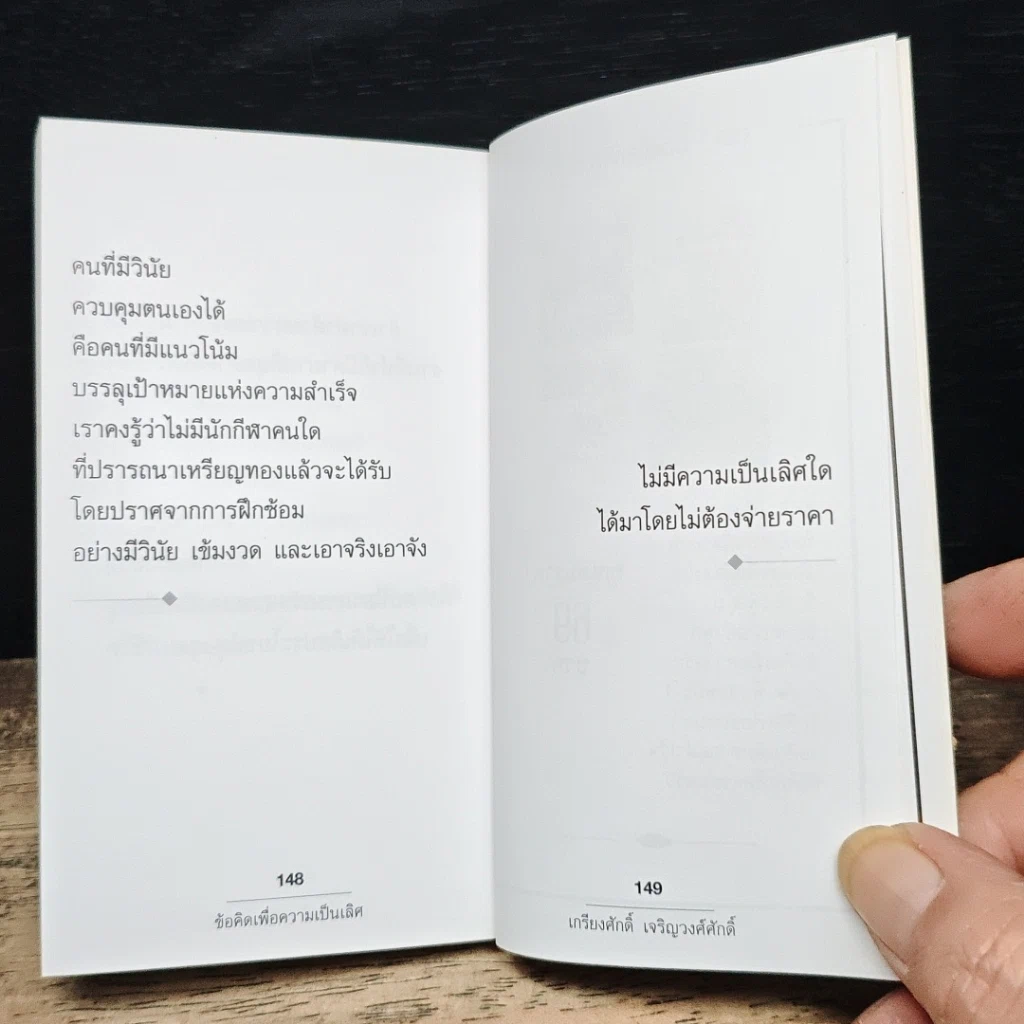 คนที่มีวินัย
ควบคุมตนเองได้
คือคนที่มีแนวโน้ม
บรรลุเป้าหมายแห่งความสำเร็จ
เราคงรู้ว่าไม่มีนักกีฬาคนใด
ที่ปรารถนาเหรียญทองแล้วจะได้รับ
โดยปราศจากการฝึกซ้อม
อย่างมีวินัย เข้มงวด และเอาจริงเอาจัง
148
ข้อคิดเพื่อความเป็นเลิศ
ไม่มีความเป็นเลิศใด
ได้มาโดยไม่ต้องจ่ายราคา
149
เกรียงศักดิ์ เจริญวงศ์ศักดิ์